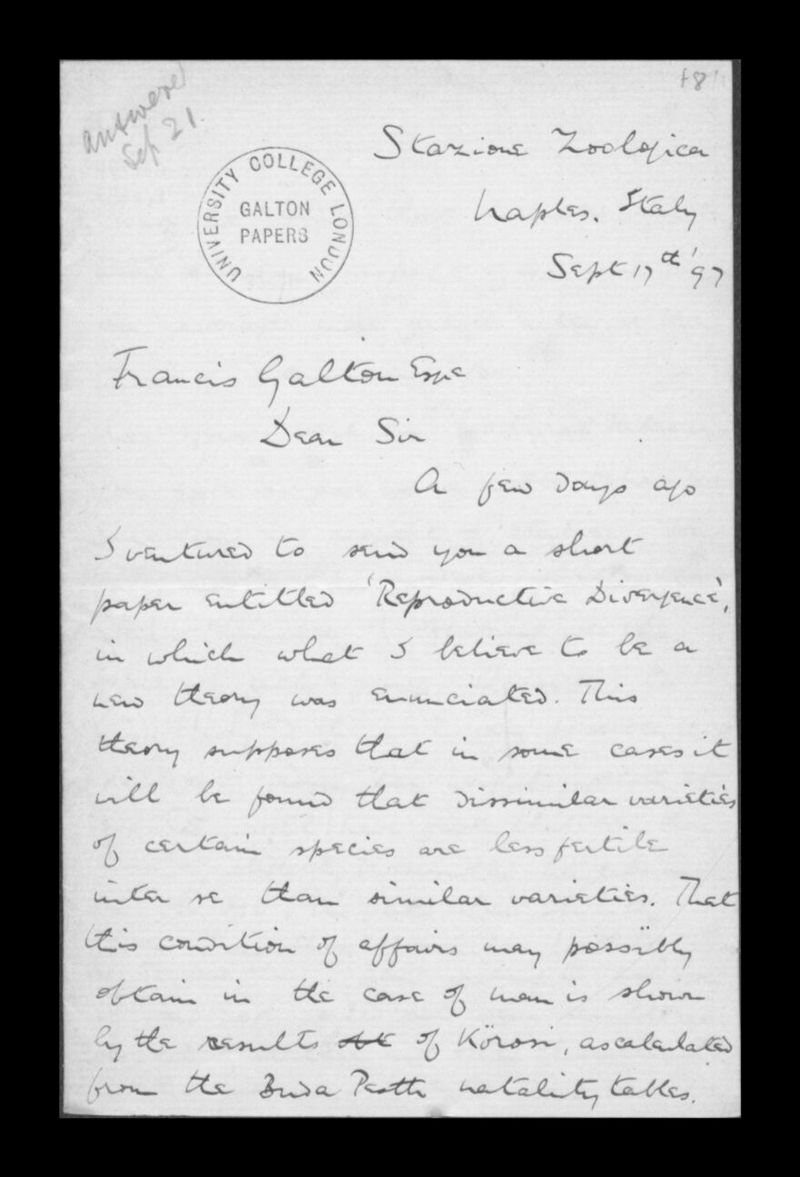 answered
Sep 21.
UNIVERSITY COLLEGE LONDON
GALTON
PAPERS
Stazione Zoologica
Naples. Italy
Sept 17th '97
Francis Galton Esqre
Dear Sir
A few days ago
I ventured to send you a short
paper entitled 'Reproductive Divergence',
in which what I believe to be a
new theory was enunciated. This
theory supposes that in some cases it
will be found that dissimilar varieties
of certain species are less fertile
inter se than similar varieties. That
this condition of affairs may possibly
obtain in the case of man is shown
by the results of Körosi, as calculated
from the Buda Pesth natality tables.